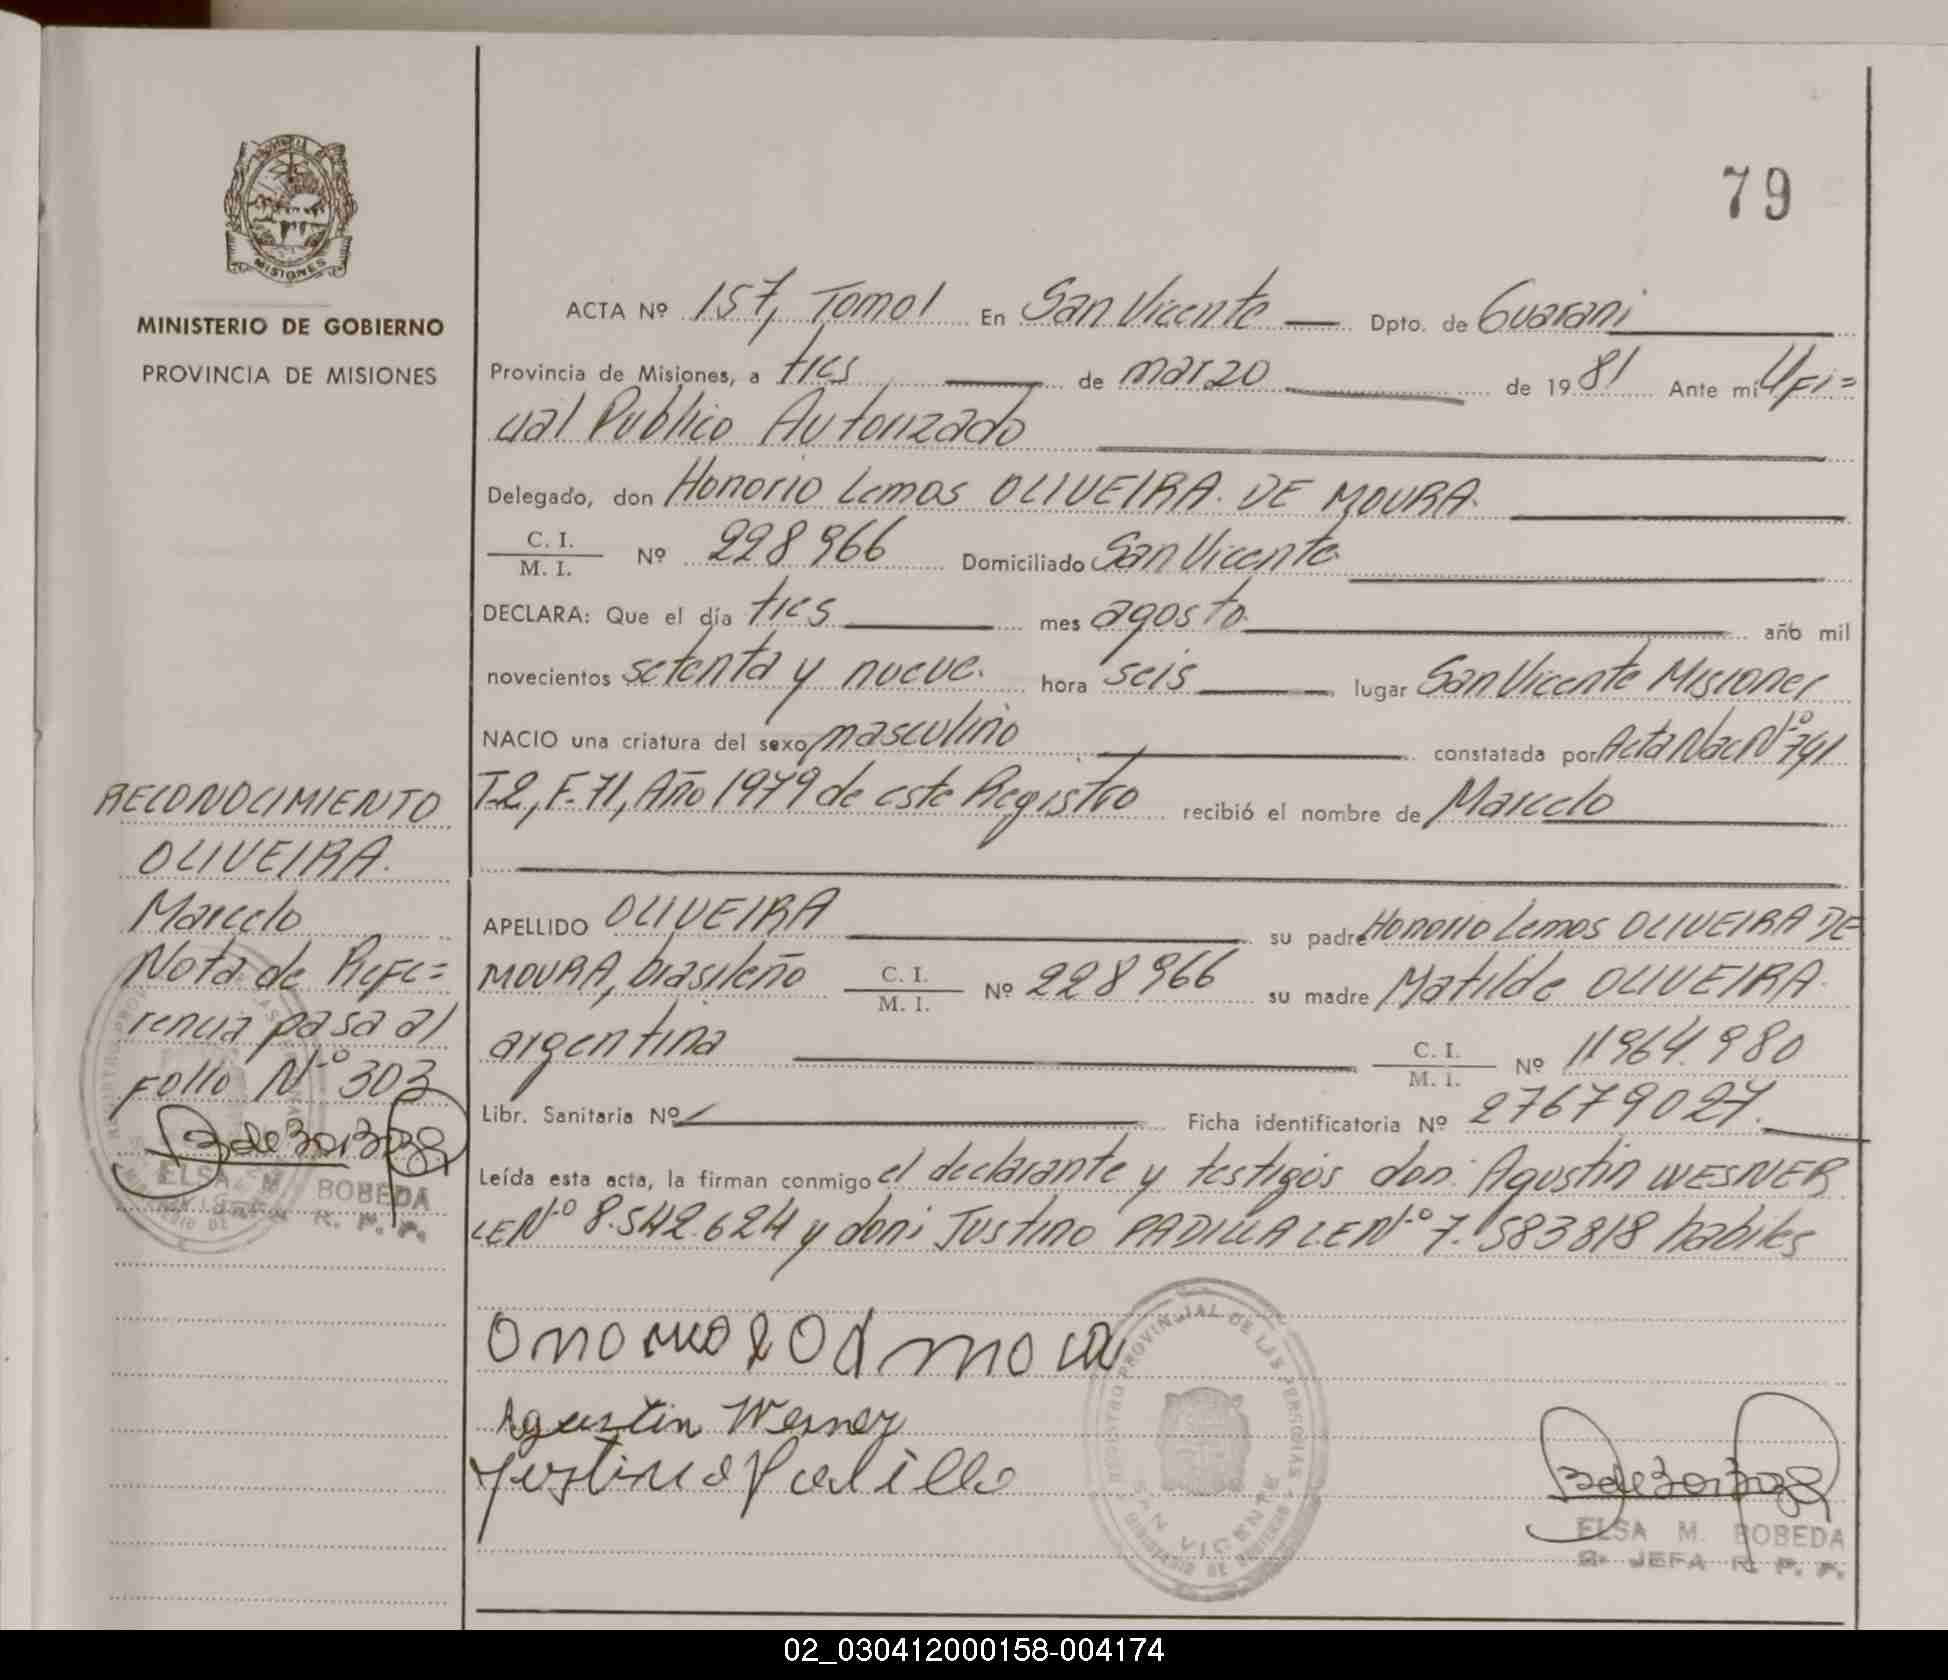 79
MISIONES
MINISTERIO DE GOBIERNO
PROVINCIA DE MISIONES
ACTA Nº 157, Tomo 1 En San Vicente Dpto. de Guarani
Provincia de Misiones, a tres de marzo de 1981 Ante mi Ofi=
cial Publico Autorizado
Delegado, don Honorio Lemos OLIVEIRA DE MOURA.
C. I.
M. I. Nº 228966 Domiciliado San Vicente
DECLARA: Que el día tres mes agosto año mil
novecientos setenta y nueve. hora seis lugar San Vicente Misiones
NACIO una criatura del sexo masculino constatada por Acta Nac Nº 791
T-2, F-71, Año 1979 de este Registro recibió el nombre de Marcelo
APELLIDO OLIVEIRA su padre Honorio Lemos OLIVEIRA DE
MOURA, brasileño C. I.
M. I. Nº 228966 su madre Matilde OLIVEIRA
argentina C. I.
M. I. Nº 11964.980
Libr. Sanitaria Nº Ficha identificatoria Nº 27679027.
Leída esta acta, la firman conmigo el declarante y testigos don: Agustin WESNER
LE Nº 8.542.624 y don: Justino PADILLA LE Nº 7.583818 habiles
RECONOCIMIENTO
OLIVEIRA.
Marcelo
Nota de Refe=
rencia pasa al
Folio Nº 303
ELSA M. BOBEDA
JEFA R. P. P.
Agustin Wesner
Justino Padilla
REGISTRO PROVINCIAL DE LAS PERSONAS
SAN VICENTE
MINISTERIO DE GOBIERNO
ELSA M. BOBEDA
JEFA R. P. P.
02_030412000158-004174